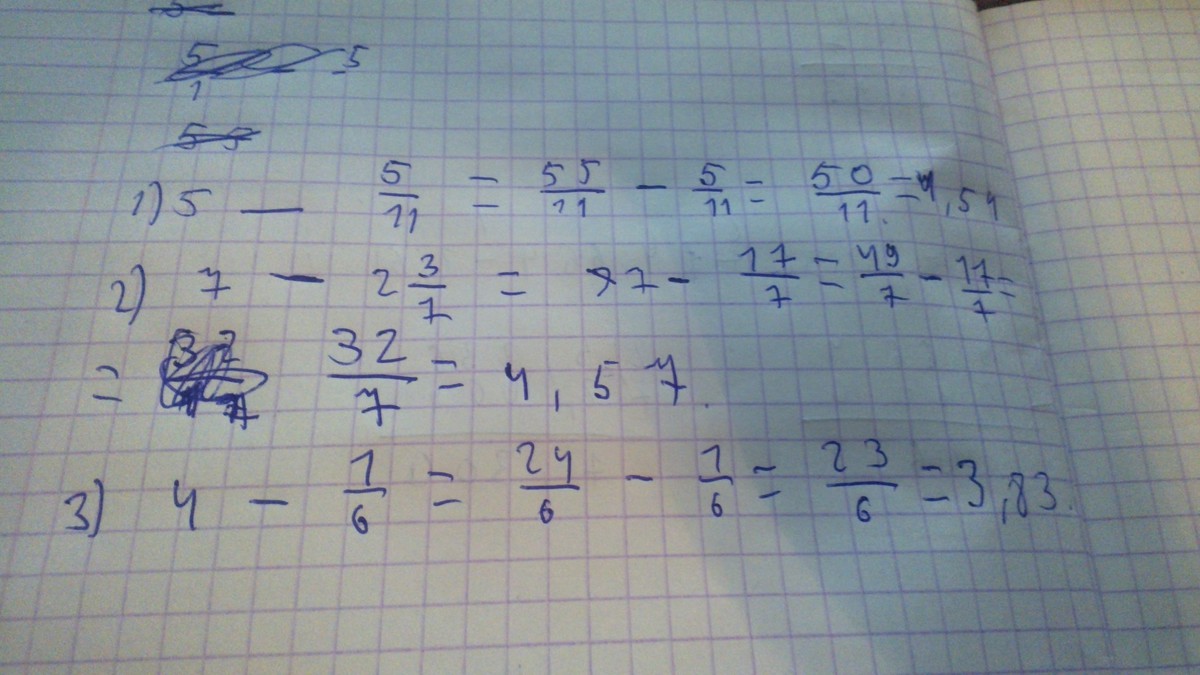 5
1
5
5 5
1) 5 — 5/11 = 55/11 - 5/11 = 50/11 = 4,54
2) 7 — 2 3/7 = 7 - 17/7 = 49/7 - 17/7 =
= 32/7 = 4,57.
3) 4 - 1/6 = 24/6 - 1/6 = 23/6 = 3,83.